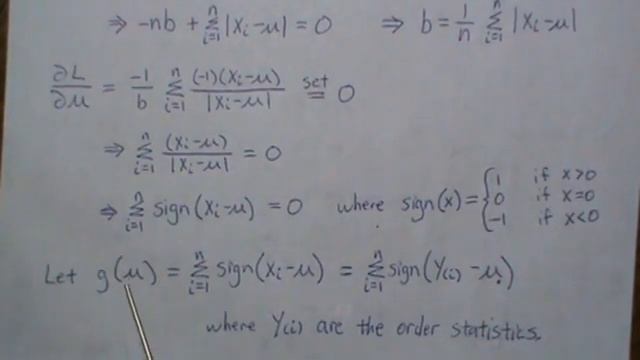 ⇒ -nb + Σ_{i=1}^{n} |x_i - μ| = 0 ⇒ b = 1/n Σ_{i=1}^{n} |x_i - μ|
∂L/∂μ = -1/b Σ_{i=1}^{n} (-1)(x_i - μ)/|x_i - μ| set = 0
⇒ Σ_{i=1}^{n} (x_i - μ)/|x_i - μ| = 0
⇒ Σ_{i=1}^{n} sign(x_i - μ) = 0 where sign(x) = { 1 if x>0
0 if x=0
-1 if x<0
Let g(μ) = Σ_{i=1}^{n} sign(x_i - μ) = Σ_{i=1}^{n} sign(Y_{(i)} - μ)
where Y_{(i)} are the order statistics.